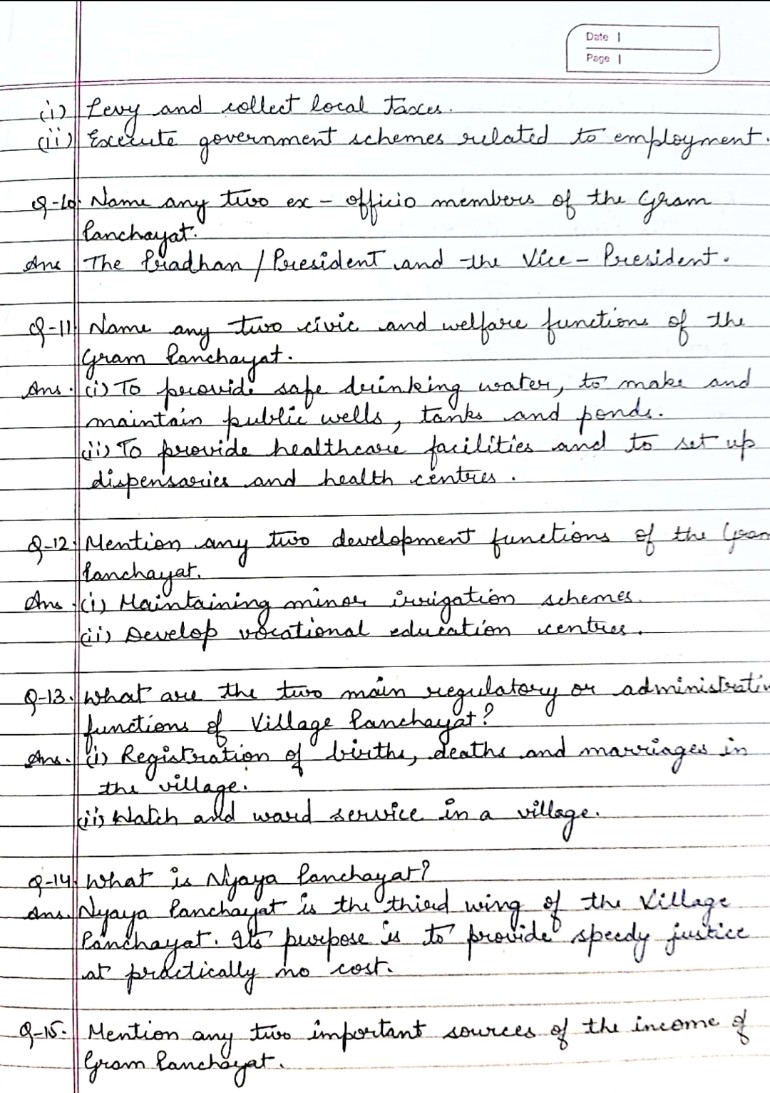 Date
Page
(i) Levy and collect local taxes.
(ii) Execute government schemes related to employment.
Q-10. Name any two ex-officio members of the Gram
Panchayat.
Ans The Pradhan / President and the Vice-President.
Q-11. Name any two civic and welfare functions of the
Gram Panchayat.
Ans. (i) To provide safe drinking water, to make and
maintain public wells, tanks and ponds.
(ii) To provide healthcare facilities and to set up
dispensaries and health centres.
Q-12. Mention any two development functions of the Gram
Panchayat.
Ans. (i) Maintaining minor irrigation schemes.
(ii) Develop vocational education centres.
Q-13. What are the two main regulatory or administrativ
functions of Village Panchayat?
Ans. (i) Registration of births, deaths and marriages in
the village.
(ii) Watch and ward service in a village.
Q-14. What is Nyaya Panchayat?
Ans. Nyaya Panchayat is the third wing of the Village
Panchayat. Its purpose is to provide speedy justice
at practically no cost.
Q-15. Mention any two important sources of the income of
Gram Panchayat.